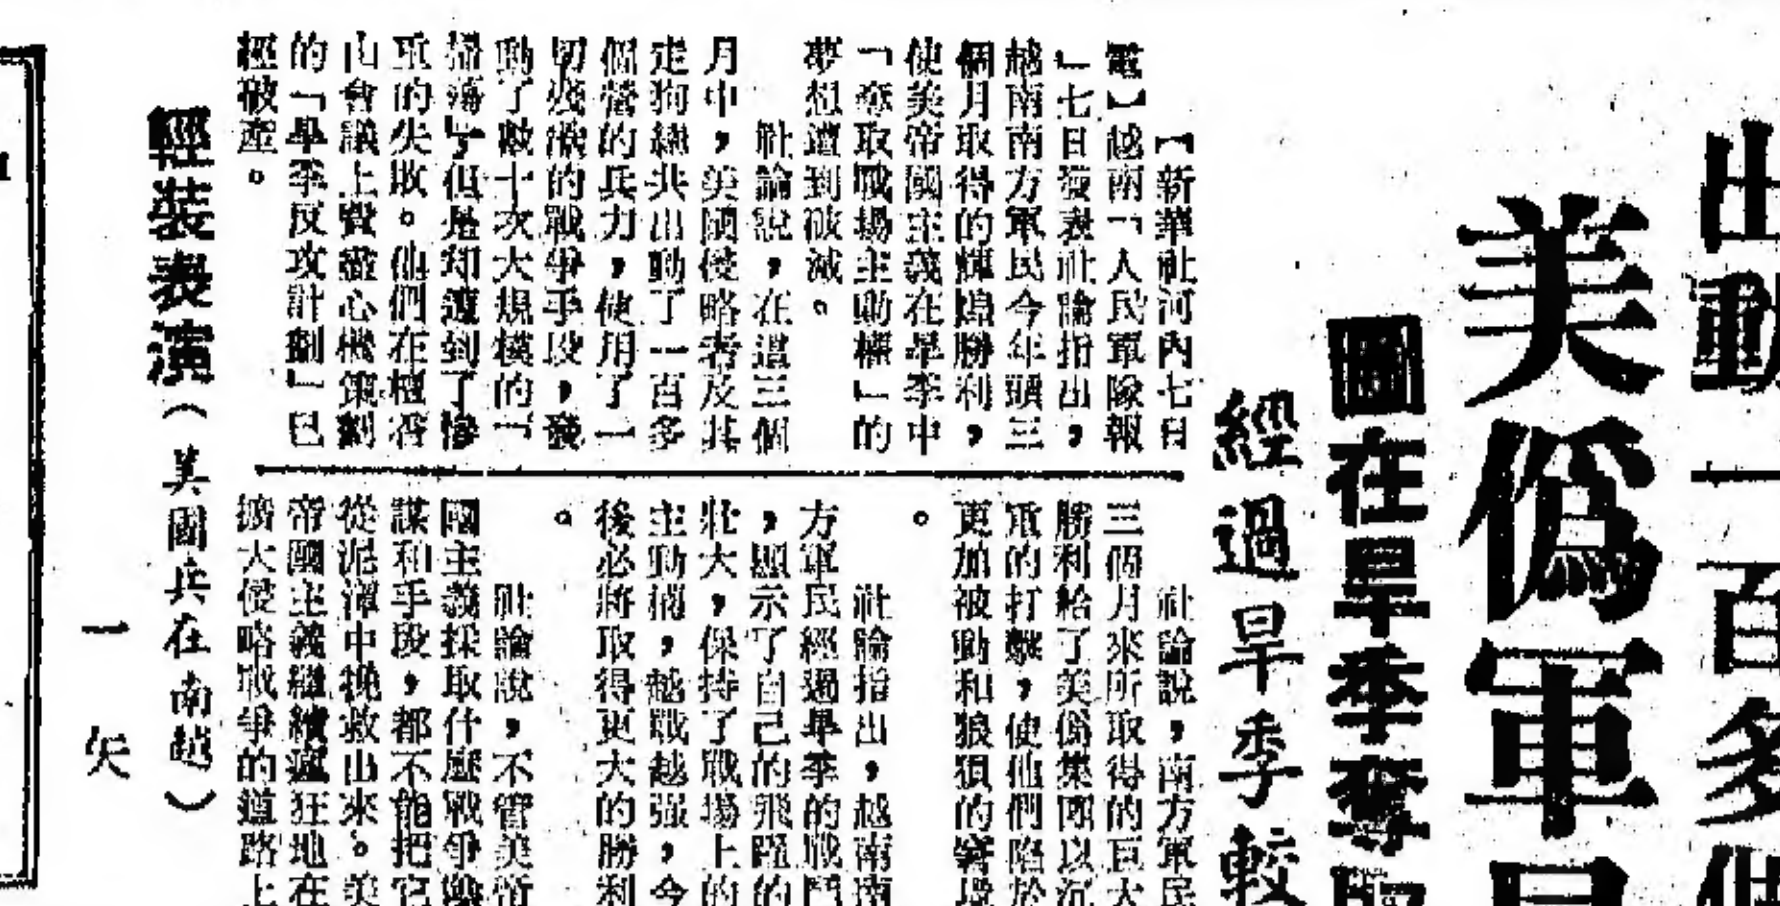 出動一百多個
美僞軍
圖在旱季奪
經過旱季較
【新華社河內七日
電】越南「人民軍隊報
」七日發表社論指出，
越南南方軍民今年頭三
個月取得的輝煌勝利，
使美帝國主義在旱季中
「奪取戰場主動權」的
夢想遭到破滅。
社論說，在這三個
月中，美國侵略者及其
走狗總共出動了一百多
個營的兵力，使用了一
切殘酷的戰爭手段，發
動了數十次大規模的「
掃蕩」，但是却遭到了慘
重的失敗。他們在檀香
山會議上費盡心機策劃
的「旱季反攻計劃」已
經破產。
社論說，南方軍民
三個月來所取得的巨大
勝利給了美僞集團以沉
重的打擊，使他們陷於
更加被動和狼狽的窘境
。
社論指出，越南南
方軍民經過旱季的戰鬥
，顯示了自己的飛躍的
壯大，保持了戰場上的
主動權，越戰越强，今
後必將取得更大的勝利
。
社論說，不管美帝
國主義採取什麼戰爭
謀和手段，都不能把它
從泥潭中挽救出來。美
帝國主義繼續瘋狂地在
擴大侵略戰爭的道路上
輕裝表演（美國兵在南越）
一矢